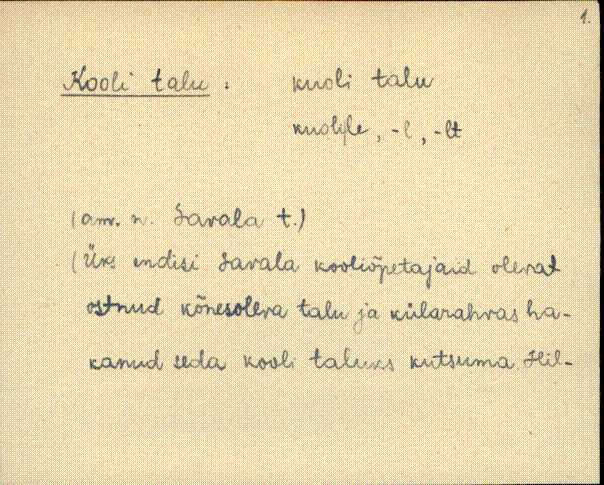 1.
Kooli talu : kuoli talu
kuolile, -l, -lt
(am. n. Savala t.)
(Üks endisi Savala kooliõpetajaid olevat
ostnud kõnesoleva talu ja külarahvas ha-
kanud seda kooli taluks kutsuma. Hil-